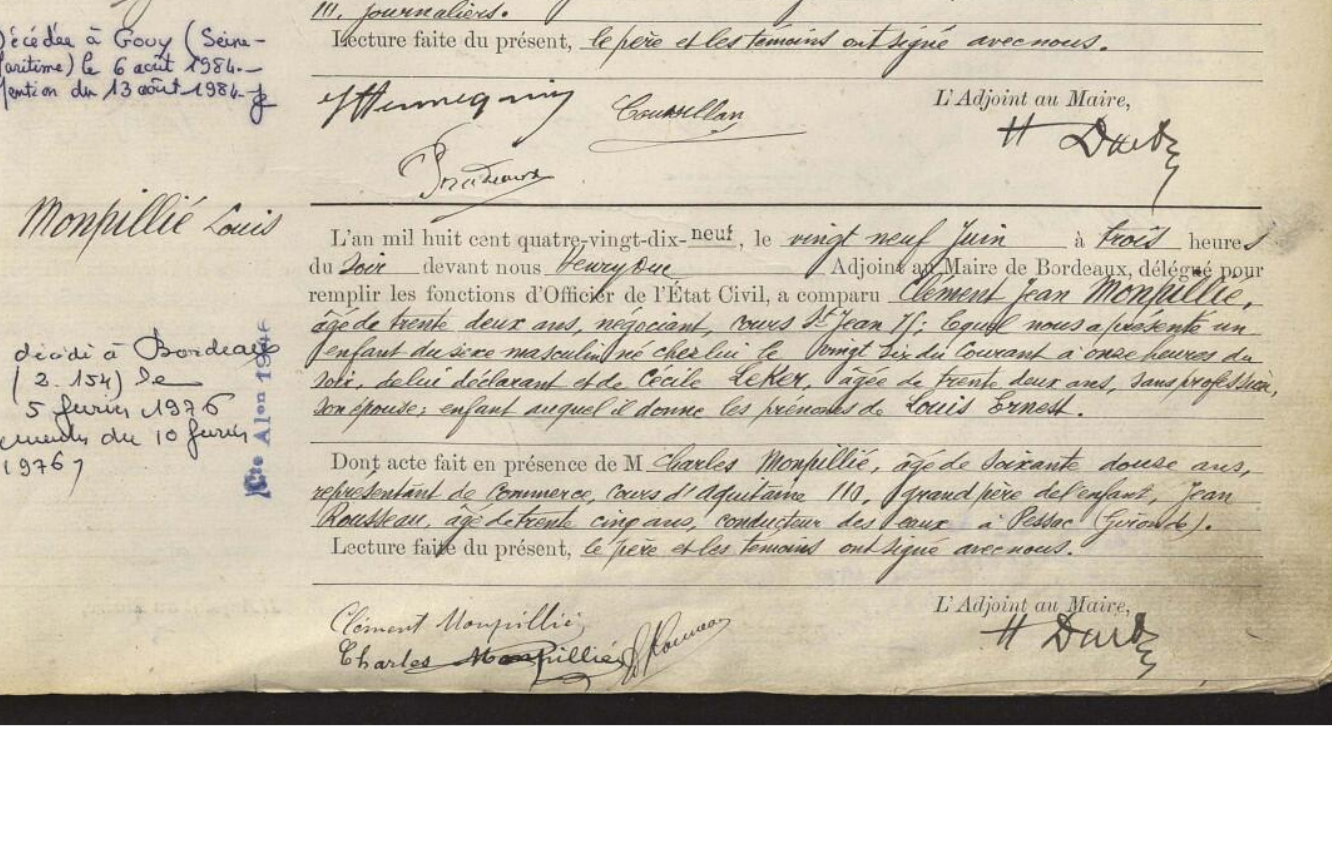 111. journaliers.
Lecture faite du présent, le père et les témoins ont signé avec nous.
écédée à Gouy (Seine-
aritime) le 6 août 1984.-
ention du 13 août 1984.
L'Adjoint au Maire,
Monpillié Louis
L'an mil huit cent quatre-vingt-dix-neuf, le vingt neuf Juin à trois heures
du Soir devant nous Adjoint au Maire de Bordeaux, délégué pour
remplir les fonctions d'Officier de l'État Civil, a comparu Clément Jean Monpillié,
âgé de trente deux ans, négociant, cours St Jean ; lequel nous a présenté un
enfant du sexe masculin né chez lui le vingt six du Courant à onze heures du
soir, de lui déclarant et de Cécile Leker, âgée de trente deux ans, sans profession,
son épouse; enfant auquel il donne les prénoms de Louis Ernest.
décédé à Bordeaux
(2.154) le
5 1976
du 10
1976
Dont acte fait en présence de M Charles Monpillié, âgé de soixante douze ans,
représentant de Commerce, Cours d'Aquitaine 110, grand père de l'enfant, Jean
Rousseau, âgé de trente cinq ans, conducteur des eaux à Pessac (Gironde).
Lecture faite du présent, le père et les témoins ont signé avec nous.
L'Adjoint au Maire,
Clément Monpillié
Charles Monpillié